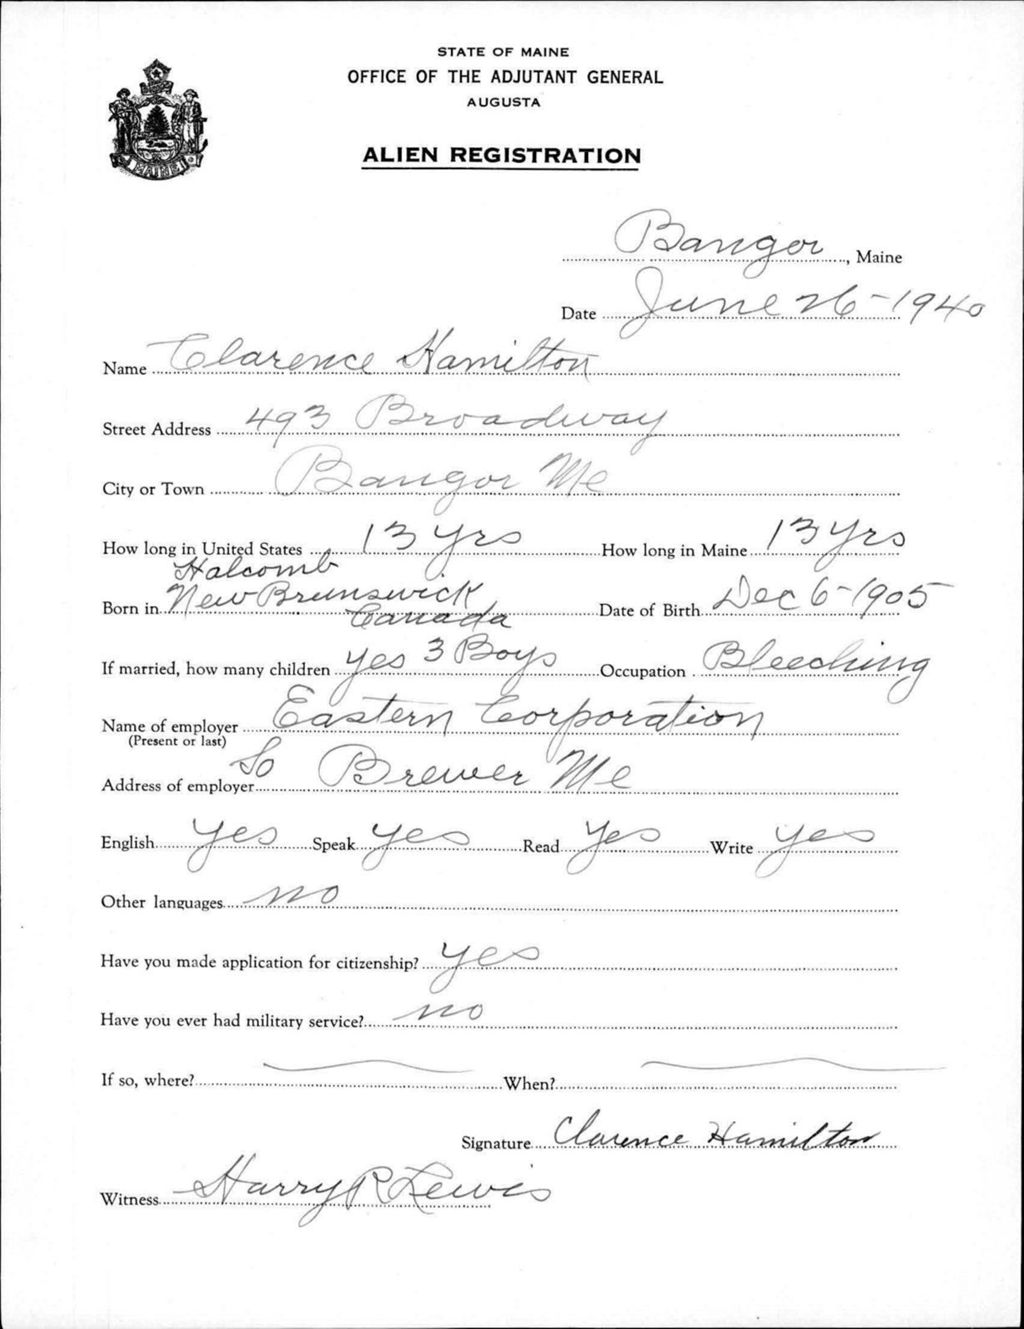 STATE OF MAINE
OFFICE OF THE ADJUTANT GENERAL
AUGUSTA
ALIEN REGISTRATION
MAINE
Bangor, Maine
Date June 26-1940
Name Clarence Hamilton
Street Address 493 Broadway
City or Town Bangor Me
How long in United States 13 yrs How long in Maine 13 yrs
Halcomb
Born in New Brunswick Date of Birth Dec 6-1905
Canada
If married, how many children yes 3 Boys Occupation Bleeching
Name of employer Eastern Corporation
(Present or last)
Address of employer So Brewer Me
English yes Speak yes Read yes Write yes
Other languages no
Have you made application for citizenship? yes
Have you ever had military service? no
If so, where? When?
Signature Clarence Hamilton
Witness Harry R Lewis